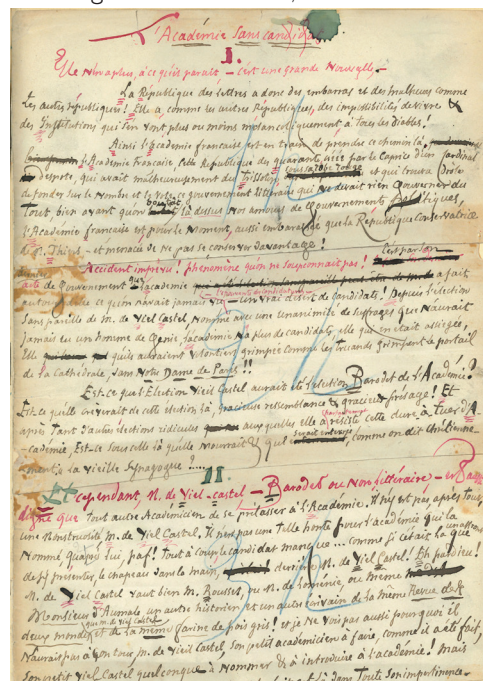 L'Académie Sans candidats
I.
Elle N'en a plus, à ce qu'il parait — C'est une grande Nouvelle —
La République des Lettres a donc des embarras et des malheurs comme
Les autres républiques ! Elle a, comme les autres Républiques, des impossibilités de vivre &
des Institutions qui s'en vont plus ou moins mélancoliquement à tous les Diables !
Ainsi l'Académie française est en train de prendre ce chemin là.
l'Académie Française cette République de quarante, née par le Caprice d'un Cardinal
& despote, qui avait malheureusement du Tissotin sous sa robe rouge et qui trouva Drôle
de fonder sur le Nombre et le vote ce gouvernement littéraire qui ne devait rien Gouverner du
Tout, bien avant qu'on là dessus Nos amours de Gouvernements Politiques,
l'Académie française est pour le Moment, aussi embarrassée que la République Conservatrice
de M. Thiers — et menacée de Ne pas se conserver davantage !
Accident imprévu ! phénomène qu'on ne soupçonnait pas !
acte de Gouvernement l'académie a fait
autour d'elle ce qu'on n'avait jamais vu un vrai désert de Candidats ! Depuis l'élection
Sans pareille de M. de Viel Castel Nommé avec une unanimité de suffrages que N'aurait
Jamais eu un homme de Génie, l'académie N'a plus de candidats, elle qui en était assiégée,
Elle qu'ils auraient volontiers grimpée comme les truands grimpaient le portail
de la Cathédrale, dans Notre Dame de Paris !!
Est-ce que l'Election Viel Castel aurait été l'élection Barodet de l'Académie ?
Est-ce qu'elle crèverait de cette élection là, gracieuse resemblance & gracieux présage ! Et
après Tant d'autres élections ridicules aux quelles elle a résisté cette dure à Tuer d'A-
-cadémie, Est-ce sous celle là qu'elle Mourrait & qu'elle serait enterrée, comme on dit Chrétienne-
-ment la vieille Synagogue .....
II
Et cependant, M. de Viel-Castel — Barodet ou Non littéraire — est aussi
digne que Tout autre Académicien de se prélasser à l'Académie. Il n'est pas après tout,
une Monstruosité M. de Viel Castel. Il n'est pas une Telle honte pour l'académie qui l'a unanimement
Nommé qu'après lui, paf ! Tout à coup le candidat manque ... comme si c'était la queue
de s'y présenter, le chapeau dans la main, derrière M. de Viel Castel ! Eh pardieu !
M. de Viel Castel vaut bien M. Rousset, ou M. de Loménie, ou même
Monsieur d'Aumale, un autre historien et un autre écrivain de la même Revue des
deux mondes que M. Viel Castel et de la même farine de pois gris ! et je Ne vois pas aussi pourquoi il
N'aurait pas à son tour, M. de Viel Castel, son petit académicien à faire, comme il a été fait,
son petit Viel Castel quelconque à Nommer & à introduire à l'académie ! Mais
dans Tout son impertinence